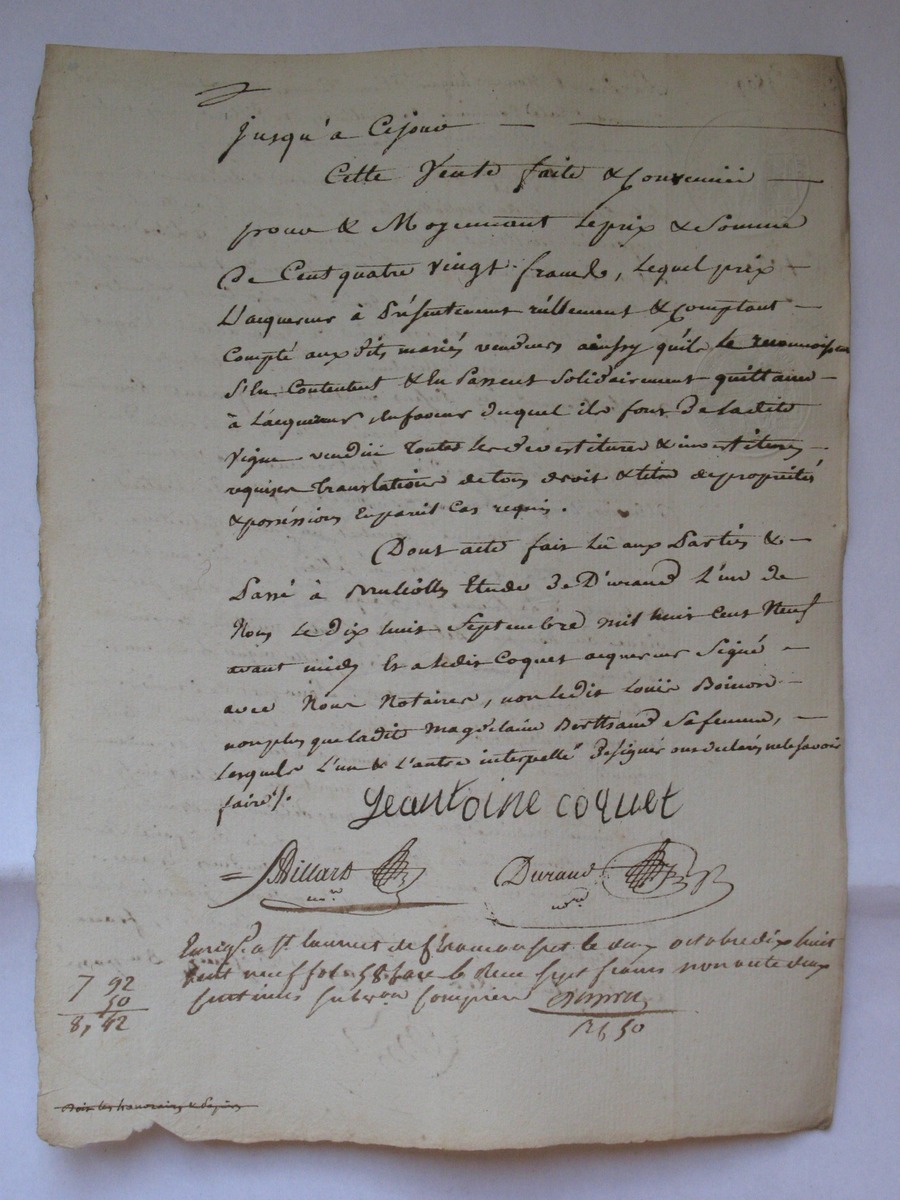 Jusqu'a Cejour
Cette Vente faite & Convenüe
pour & Moyennant Leprix & Somme
De Cent quatre vingt francs, Lequel prix
L'acquereur à Présentement réllement & comptant
Compté aux dits mariés vendeurs ainssy qu'ils le reconnoissent
S'En Contentent & En Passent Solidairement quittance
à L'acquereur, En faveur duquel ils font De Ladite
Vigne vendüe Toutes les devestitures & investitures
requises Translation de tous droit & titre de propriétés
& posséssions En pareil Cas requis.
Dont acte fait Lû aux Parties &
Passé à Etude De Durand L'un de
Nous Le Dix huit Septembre mil huit Cent Neuf
avant midy Et a Ledit Coquet acquereur Signé
avec Nous Notaires, non Ledit Louis
non plus que Ladite Magdelaine Berthrand Sa femme,
Lesquels L'un & L'autre interpellés De signer ont déclarés ne le Savoir
faire/.
Jeantoine coquet
Billard Durand
nore nore
Enregé a St Laurent de Chamousset le deux octobre dix huit
cent neuf fol 58 face Recu Sept francs nonante deux
centimes subvon comprise
7 92
50
8,42
12 f 50
Doit les honoraires &